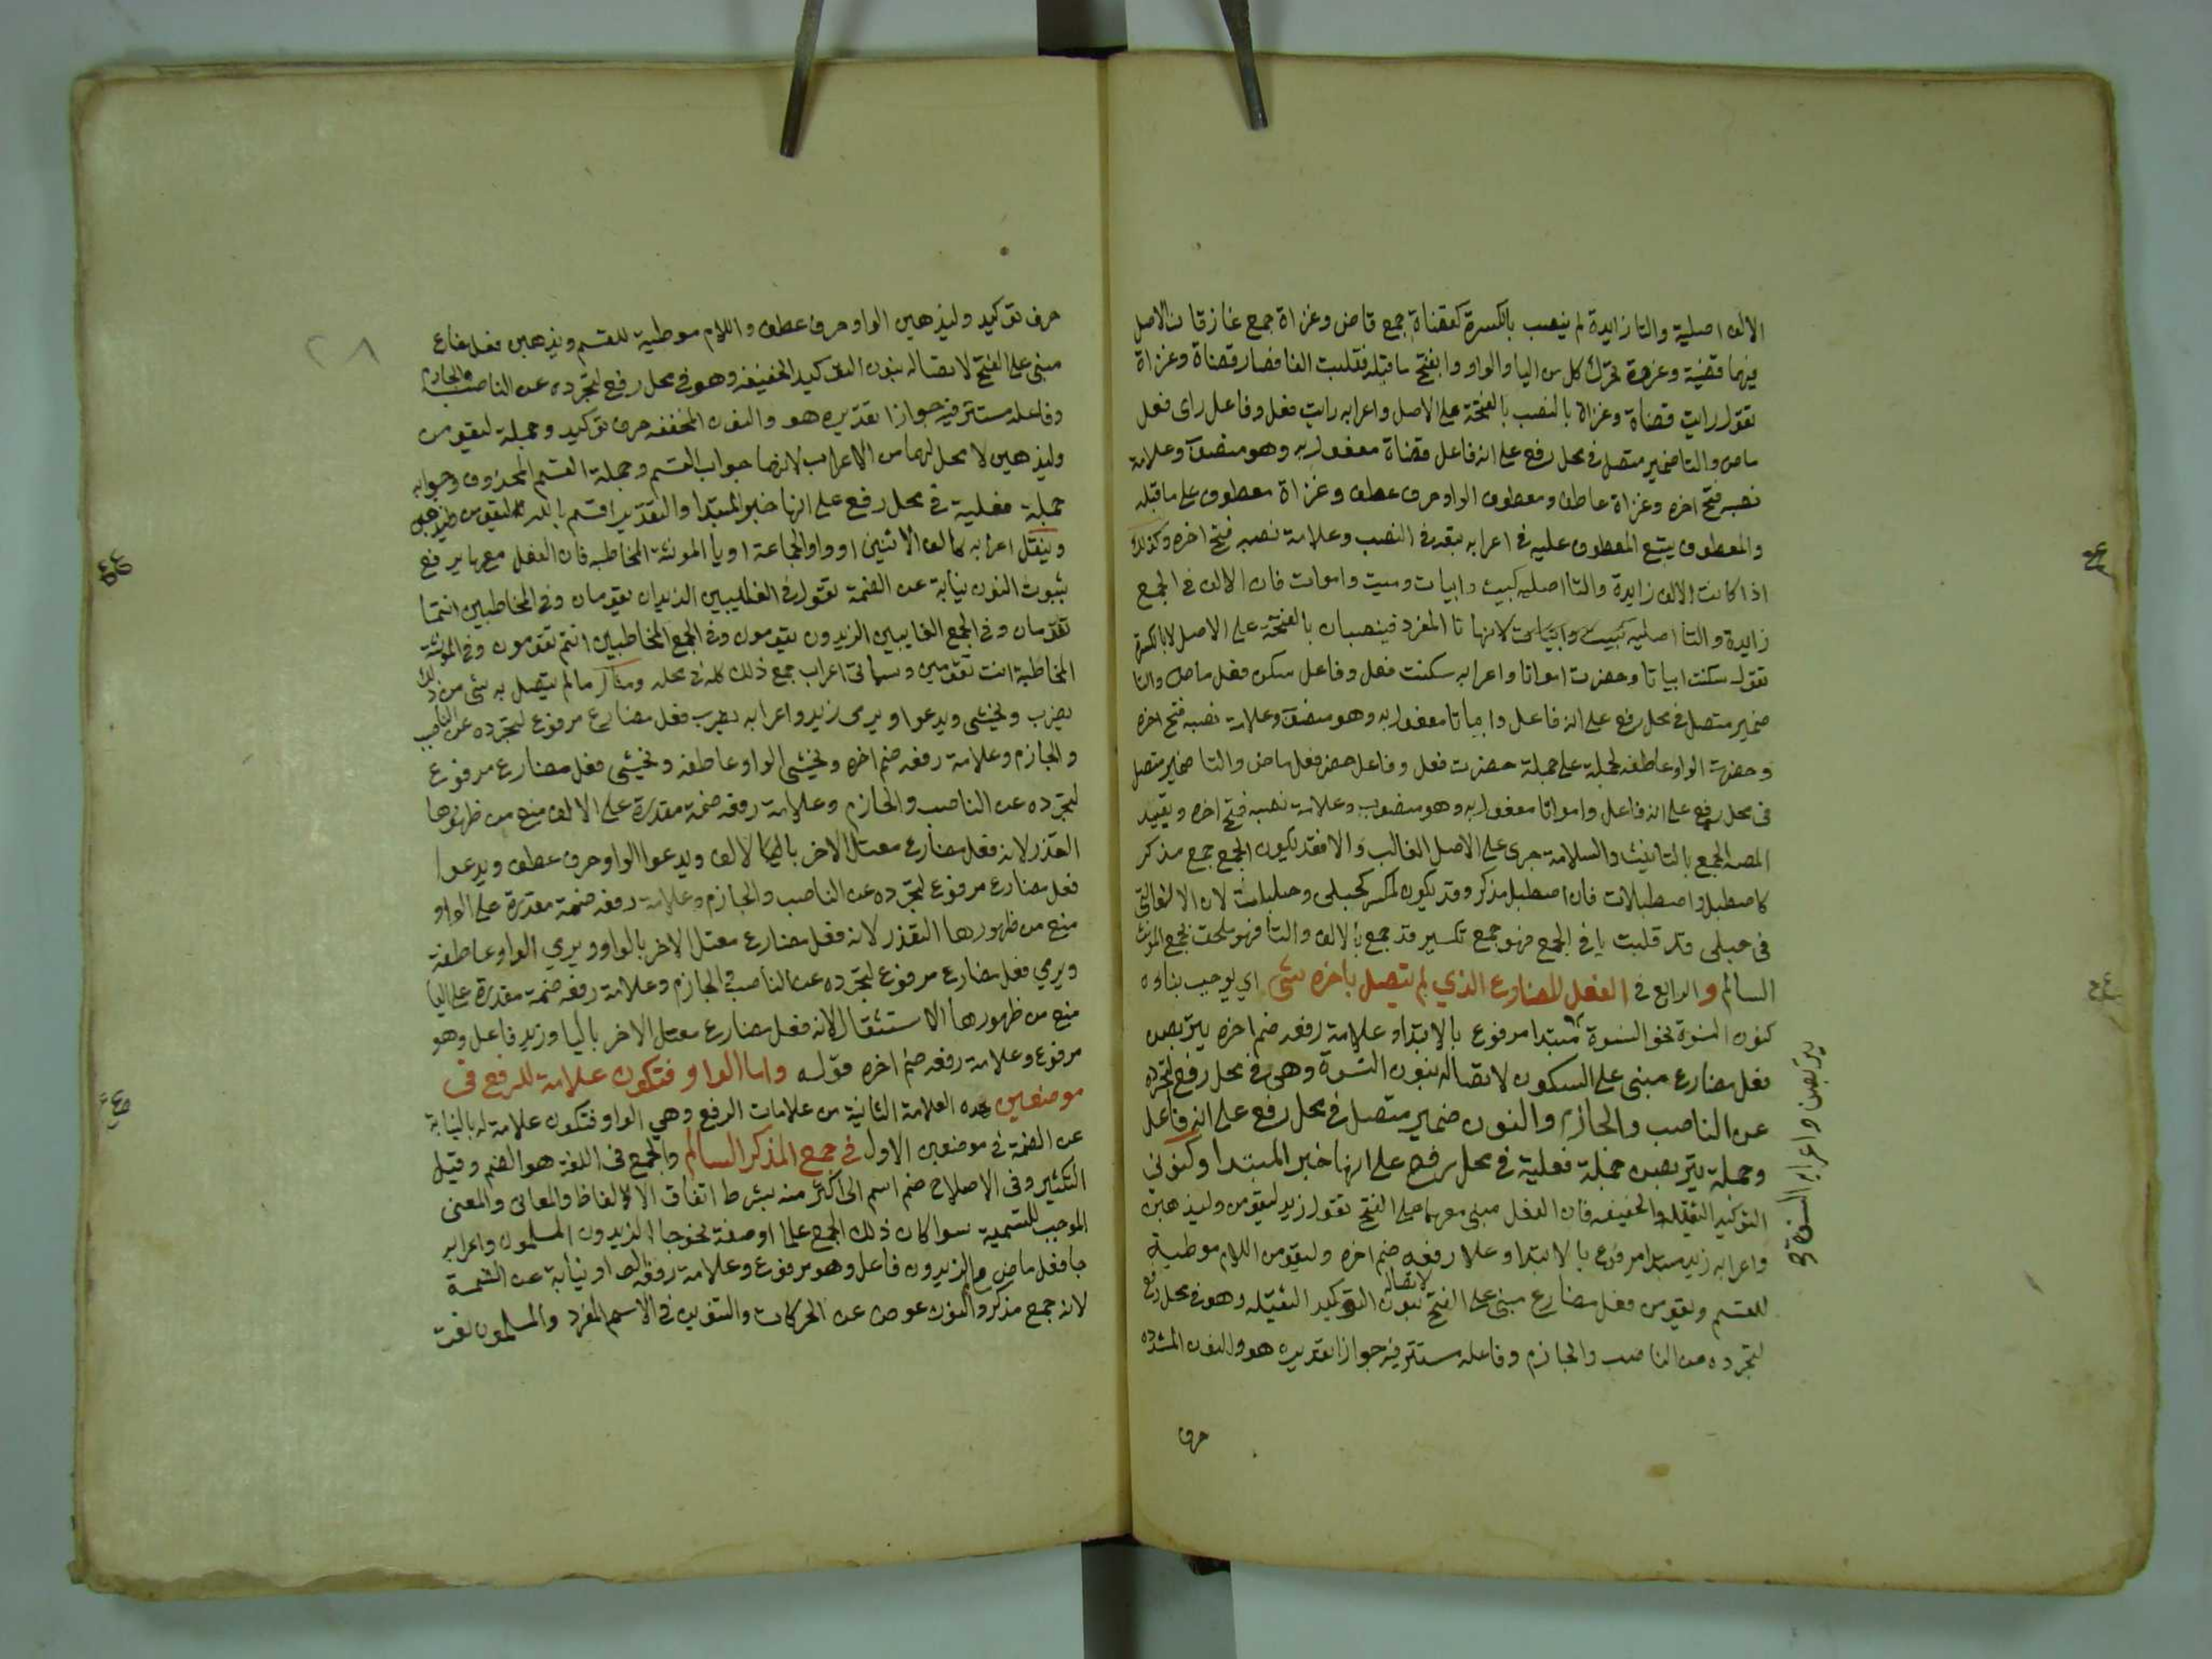 الالف اصلية والتا زايدة لم ينصب بالكسرة كقضاة جمع قاض وغزاة جمع غاز فان الاصل
فيهما قضية وغزوة تحرك كل من اليا والواو وانفتح ما قبله فقلبت الفا فصار قضاة وغزاة
تقول رايت قضاة وغزاة بالنصب بالفتحة على الاصل واعرابه رايت فعل وفاعل راى فعل
ماض والتا ضمير متصل في محل رفع على انه فاعل قضاة مفعول به وهو منصوب وعلامة
نصبه فتح اخره وغزاة عاطف ومعطوف الواو حرف عطف وغزاة معطوف على ما قبله
والمعطوف يتبع المعطوف عليه في اعرابه تبعه في النصب وعلامة نصبه فتح اخره وكذلك
اذا كانت الالف زايدة والتا اصلية كبيت وابيات وميت واموات فان الالف في الجمع
زايدة والتا اصلية كبيت وابيات لانها تا المفرد فينصبان بالفتحة على الاصل لا بالكسرة
تقول سكنت ابياتا وحضرت امواتا واعرابه سكنت فعل وفاعل سكن فعل ماض والتا
ضمير متصل في محل رفع على انه فاعل وابياتا مفعول به وهو منصوب وعلامة نصبه فتح اخره
وحضرت الواو عاطفة لجملة على جملة حضرت فعل وفاعل حضر فعل ماض والتا ضمير متصل
في محل رفع على انه فاعل وامواتا مفعول به وهو منصوب وعلامة نصبه فتح اخره وتقييد
المصه الجمع بالتانيث والسلامة جرى على الاصل الغالب والا فقد يكون الجمع جمع مذكر
كاصطبل واصطبلات فان اصطبل مذكر وقد يكون لمكسر كحبلى وحبليات لان الالف التي
في حبلى قد قلبت يا في الجمع فهو جمع تكسير قد جمع بالالف والتا فهو ملحق بجمع المونث
السالم والرابع في الفعل المضارع الذي لم يتصل باخره شي اي يوجب بناوه
كنون النسوة نحو النسوة مبتدا مرفوع بالابتدا وعلامة رفعه ضم اخره يتربصن
فعل مضارع مبني على السكون لاتصاله بنون النسوة وهي في محل رفع لتجرده
عن الناصب والجازم والنون ضمير متصل في محل رفع على انه فاعل
وجملة يتربصن جملة فعلية في محل رفع على انها خبر المبتدا وكنوني
التوكيد الثقيلة والخفيفة فان الفعل مبني معهما على الفتح تقول زيد ليقومن وليذهبن
واعرابه زيد مبتدا مرفوع بالابتدا وعلا رفعه ضم اخره وليقومن اللام موطية
للقسم ويقومن فعل مضارع مبني على الفتح لاتصاله بنون التوكيد الثقيلة وهو في محل رفع
لتجرده من الناصب والجازم وفاعله مستتر فيه جوازا تقديره هو والنون المشدده
حرف
يتربصن واعرابه النسوة
٢٨
حرف توكيد وليذهبن الواو حرف عطف واللام موطية للقسم ويذهبن فعل مضارع
مبني على الفتح لاتصاله بنون التوكيد الخفيفة وهو في محل رفع لتجرده عن الناصب والجازم
وفاعله مستتر فيه جوازا تقديره هو والنون المخففه حرف توكيد وجملة ليقومن
وليذهبن لا محل لهما من الاعراب لانهما جواب القسم وجملة القسم المحذوف وجوابه
جملة فعلية في محل رفع على انها خبر المبتدا والتقدير اقسم بالله ليقومن وليذهبن
وينقل اعرابه كالف الاثنين او واو الجماعة او يا المونثة المخاطبه فان الفعل معها يرفع
بثبوت النون نيابة عن الضمة تقول في الغايبين الزيدان يقومان وفي المخاطبين انتما
تقومان وفي الجمع الغايبين الزيدون يقومون وفي الجمع المخاطبين انتم تقومون وفي المونثة
المخاطبة انت تقومين وسياتي اعراب جمع ذلك كله في محله ومثال ما لم يتصل به شي من ذلك
يضرب ويخشى ويدعوا ويرمى زيد واعرابه يضرب فعل مضارع مرفوع لتجرده عن الناصب
والجازم وعلامة رفعه ضم اخره ويخشى الواو عاطفه ويخشى فعل مضارع مرفوع
لتجرده عن الناصب والجازم وعلامة رفعه ضمة مقدرة على الالف منع من ظهورها
التعذر لانه فعل مضارع معتل الاخر بالالف ويدعوا الواو حرف عطف ويدعوا
فعل مضارع مرفوع لتجرده عن الناصب والجازم وعلامة رفعه ضمة مقدرة على الواو
منع من ظهورها التعذر لانه فعل مضارع معتل الاخر بالواو ويرمي الواو عاطفة
ويرمي فعل مضارع مرفوع لتجرده عن الناصب والجازم وعلامة رفعه ضمة مقدرة على اليا
منع من ظهورها الاستثقال لانه فعل مضارع معتل الاخر باليا وزيد فاعل وهو
مرفوع وعلامة رفعه ضم اخره قوله واما الواو فتكون علامة للرفع في
موضعين هذه العلامة الثانية من علامات الرفع وهي الواو فتكون علامة له بالنيابة
عن الضمة في موضعين الاول في جمع المذكر السالم والجمع في اللغة هو الضم وقيل
التكثير وفي الاصلاح ضم اسم الى اكثر منه بشرط اتفاق الالفاظ والمعاني والمعنى
الموجب للتسمية سوا كان ذلك الجمع علما او صفة نحو جا الزيدون المسلمون واعرابه
جا فعل ماض والزيدون فاعل وهو مرفوع وعلامة رفعه الواو نيابة عن الضمة
لانه جمع مذكر والنون عوض عن الحركات والتنوين في الاسم المفرد والمسلمون نعت